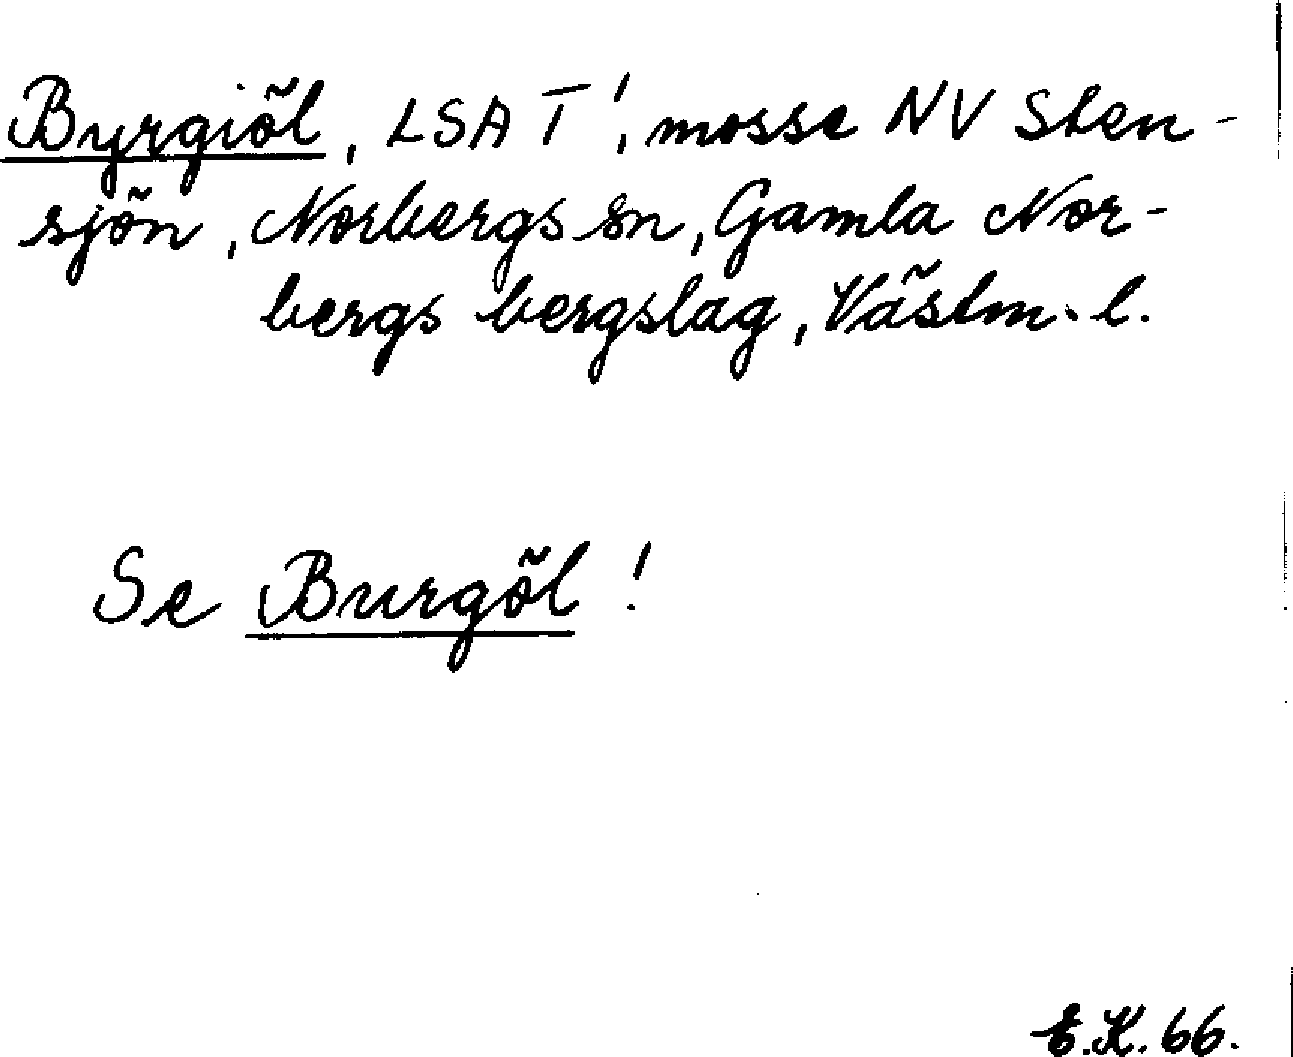 Byrgiöl, LSA T', mosse NV Sten-
sjön, Norbergs sn, Gamla Nor-
bergs bergslag, Västm. l.
Se Burgöl!
E.K. 66.